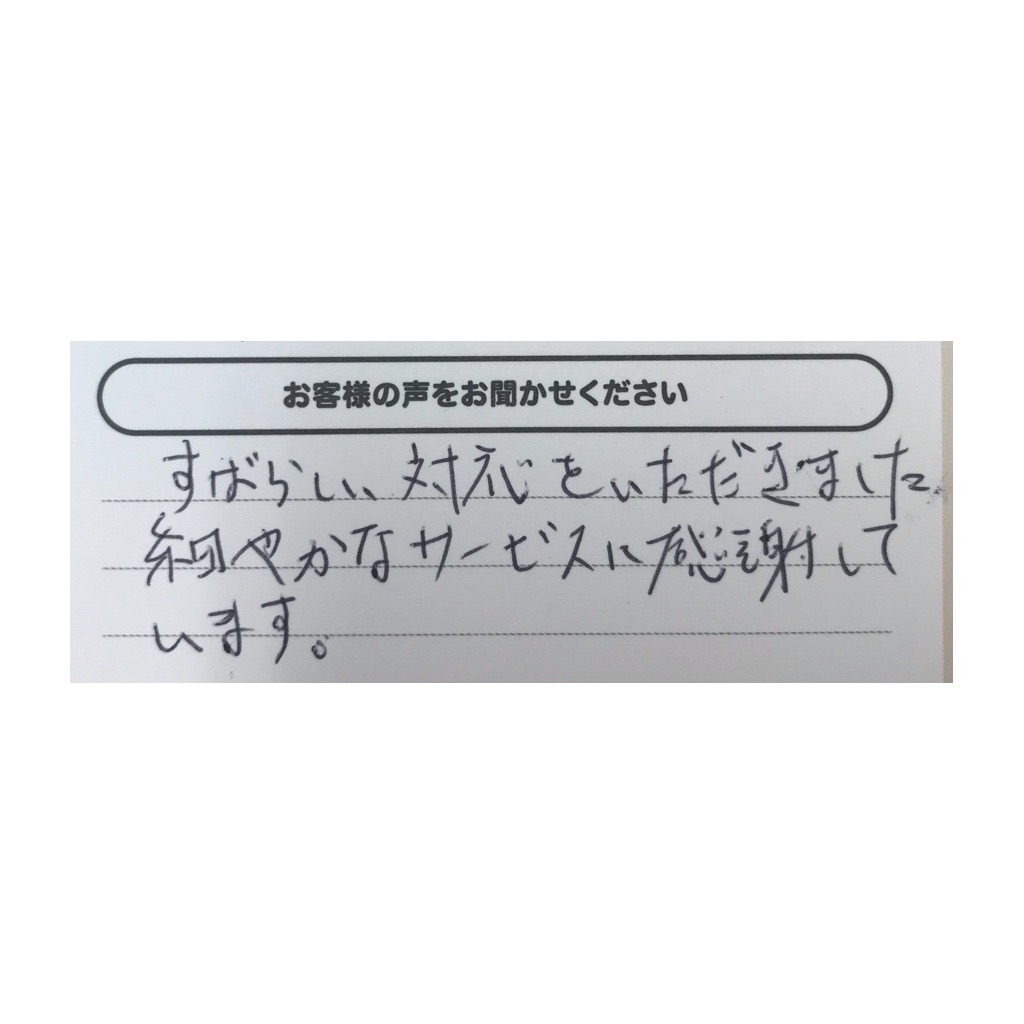 お客様の声をお聞かせください
すばらしい対応をいただきました。
細やかなサービスに感謝して
います。